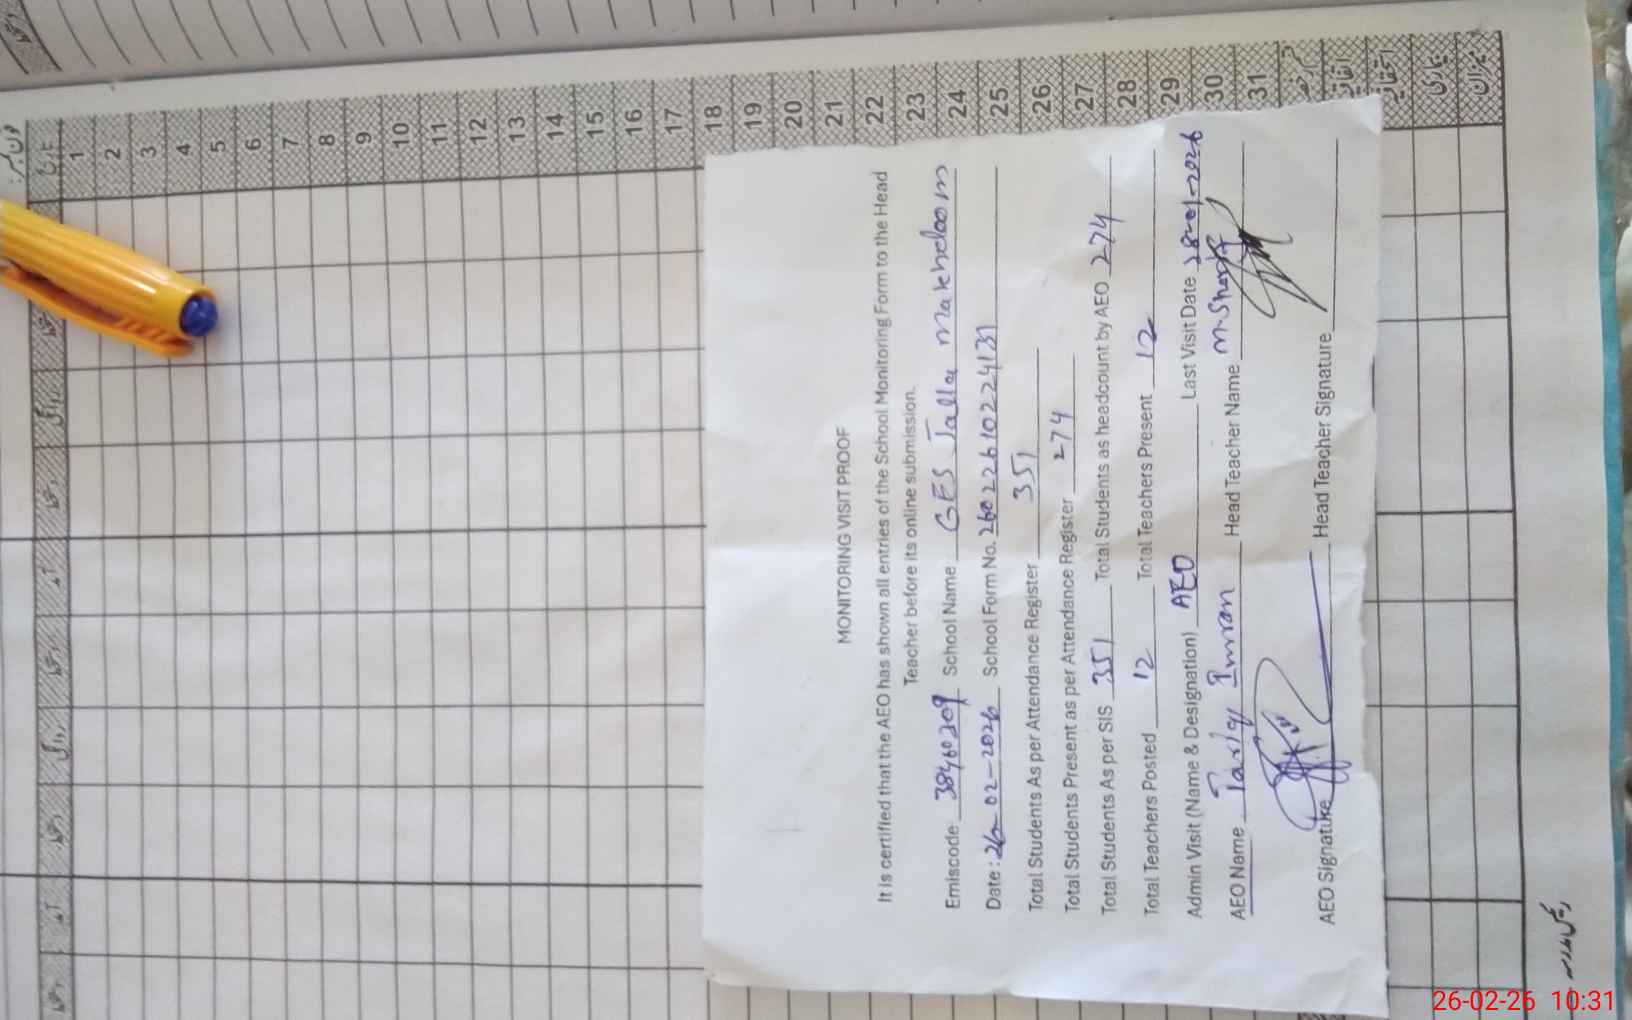 1
2
3
4
5
6
7
8
9
10
11
12
13
14
15
16
17
18
19
20
21
22
23
24
25
26
27
28
29
30
31
MONITORING VISIT PROOF
It is certified that the AEO has shown all entries of the School Monitoring Form to the Head
Teacher before its online submission.
Emiscode 38460209 School Name GES Jalla Makhdoom
Date: 26-02-2026 School Form No. 26022610224131
Total Students As per Attendance Register 351
Total Students Present as per Attendance Register 274
Total Students As per SIS 351 Total Students as headcount by AEO 274
Total Teachers Posted 12 Total Teachers Present 12
Admin Visit (Name & Designation) AEO Last Visit Date 28-01-2026
AEO Name Tariq Imran Head Teacher Name M Sharif
AEO Signature Head Teacher Signature
26-02-26 10:31